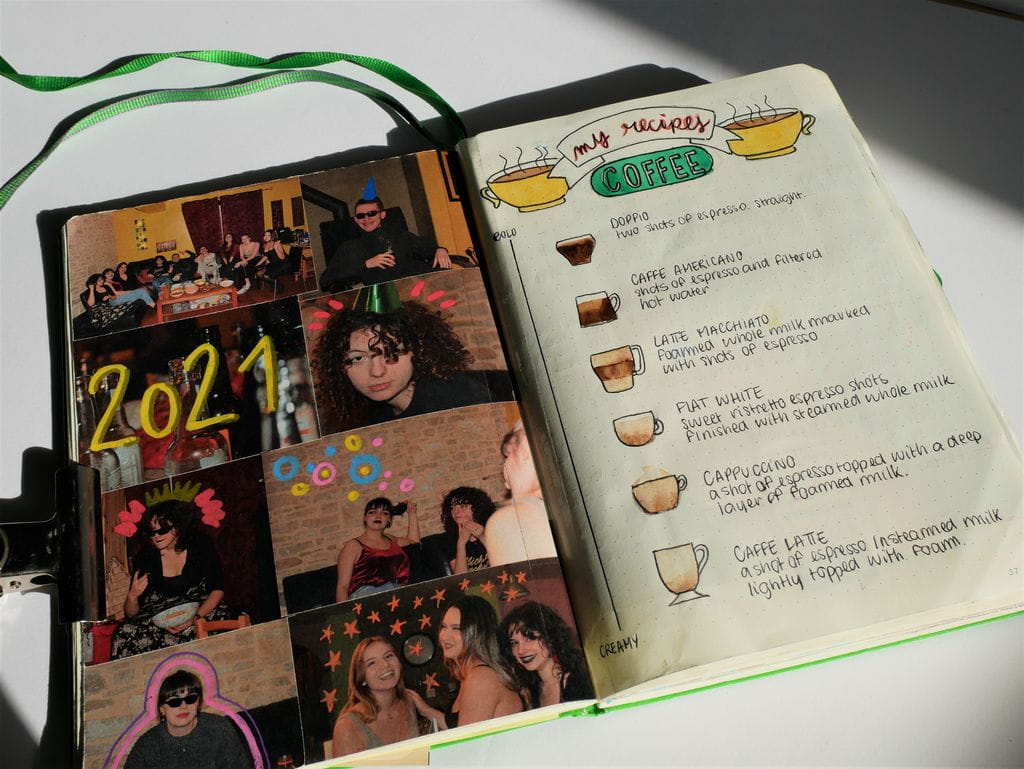 2021
my recipes
COFFEE
BOLD
DOPPIO
two shots of espresso. straight.
CAFFE AMERICANO
shots of espresso and filtered
hot water
LATTE MACCHIATO
foamed whole milk marked
with shots of espresso
FLAT WHITE
sweet ristretto espresso shots
finished with steamed whole milk
CAPPUCCINO
a shot of espresso topped with a deep
layer of foamed milk.
CAFFE LATTE
a shot of espresso in steamed milk
lightly topped with foam.
CREAMY
37